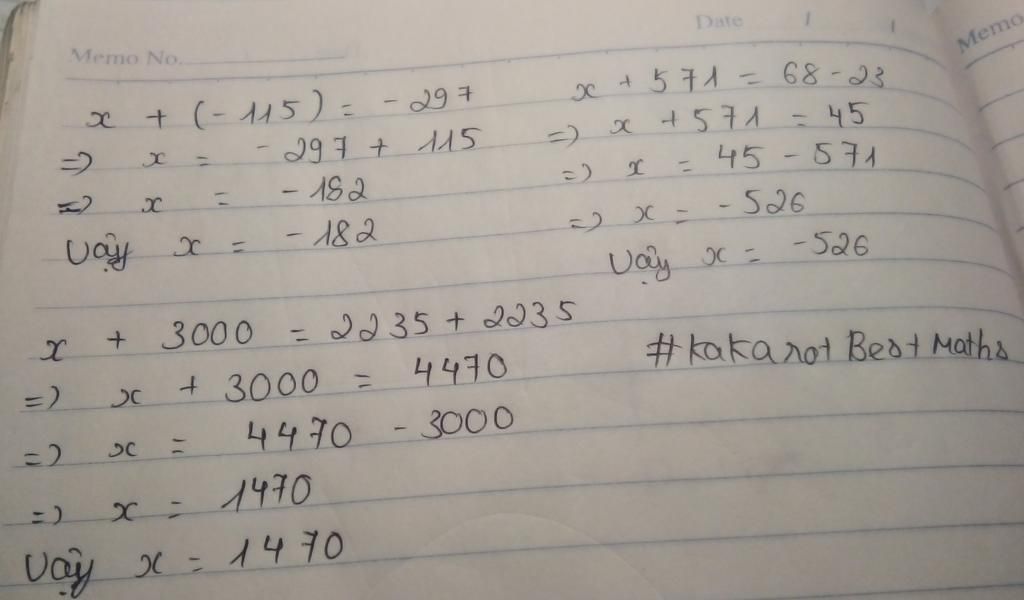 Date / /
Memo No.
Memo
x + (-115) = -297
=> x = -297 + 115
=> x = -182
Vậy x = -182
x + 571 = 68 - 23
=> x + 571 = 45
=> x = 45 - 571
=> x = -526
Vậy x = -526
x + 3000 = 2235 + 2235
=> x + 3000 = 4470
=> x = 4470 - 3000
=> x = 1470
Vậy x = 1470
#Kakarot Best Maths